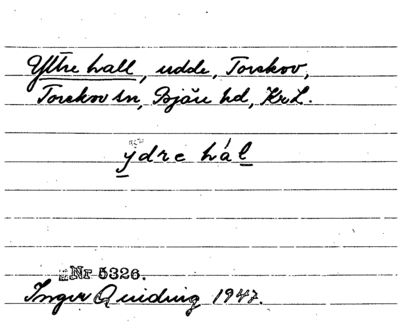 Yttre hall, udde, Torekov,
Torekov sn, Bjäre hd, Kr.L.
ydre hál
Nr 5326.
Inger Quiding 1947.